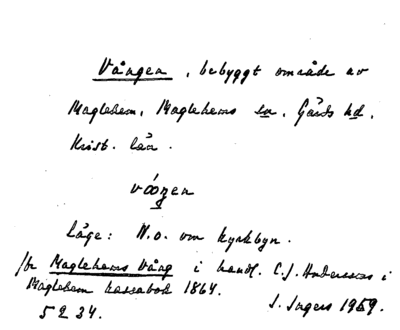 Vången, bebyggt område av
Maglehem, Maglehems sn, Gärds hd,
Krist. län.
våọŋen
Läge: N.o. om kyrkbyn.
Maglehems Vång i handl. C.J. Anderssons i
Maglehem kassabok 1864.
J. Ingers 1959.
5234.